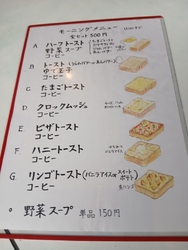 モーニングメニュー
全セット500円
A ハーフトースト
野菜スープ
コーヒー
B トースト
ゆで玉子
コーヒー
C たまごトースト
コーヒー
D クロックムッシュ
コーヒー
E ピザトースト
コーヒー
F ハニートースト
コーヒー
G リンゴトースト(バニラアイス or スイートポテト)
コーヒー
野菜スープ 単品150円